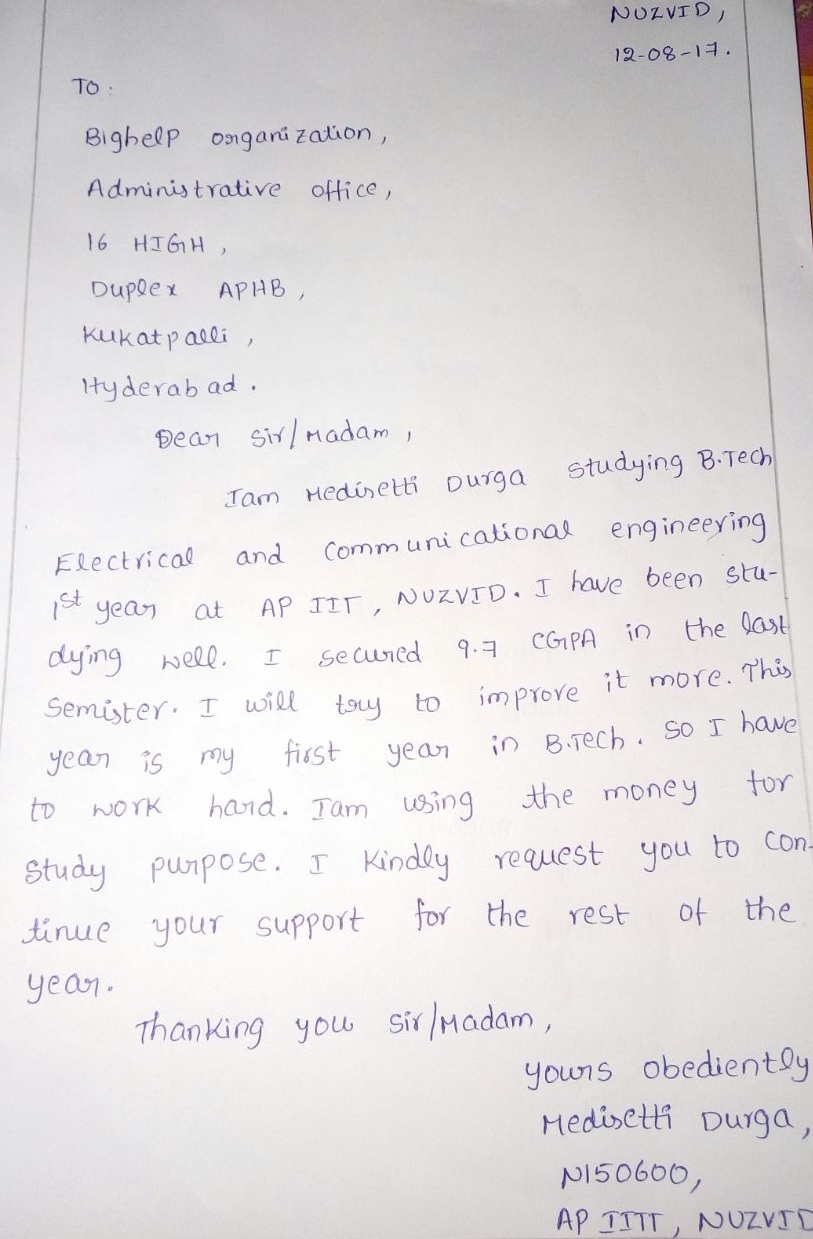 NUZVID,
12-08-17.
TO:
Bighelp organization,
Administrative office,
16 HIGH,
Duplex APHB,
Kukatpalli,
Hyderabad.
Dear Sir/Madam,
Iam Medisetti Durga studying B.Tech
Electrical and Communicational engineering
1st year at AP IIIT, NUZVID. I have been stu-
dying well. I secured 9.7 CGPA in the last
Semister. I will try to improve it more. This
year is my first year in B.Tech. So I have
to work hard. Iam using the money for
Study purpose. I Kindly request you to con-
tinue your support for the rest of the
year.
Thanking you Sir/Madam,
yours obediently
Medisetti Durga,
N150600,
AP IIIT, NUZVID